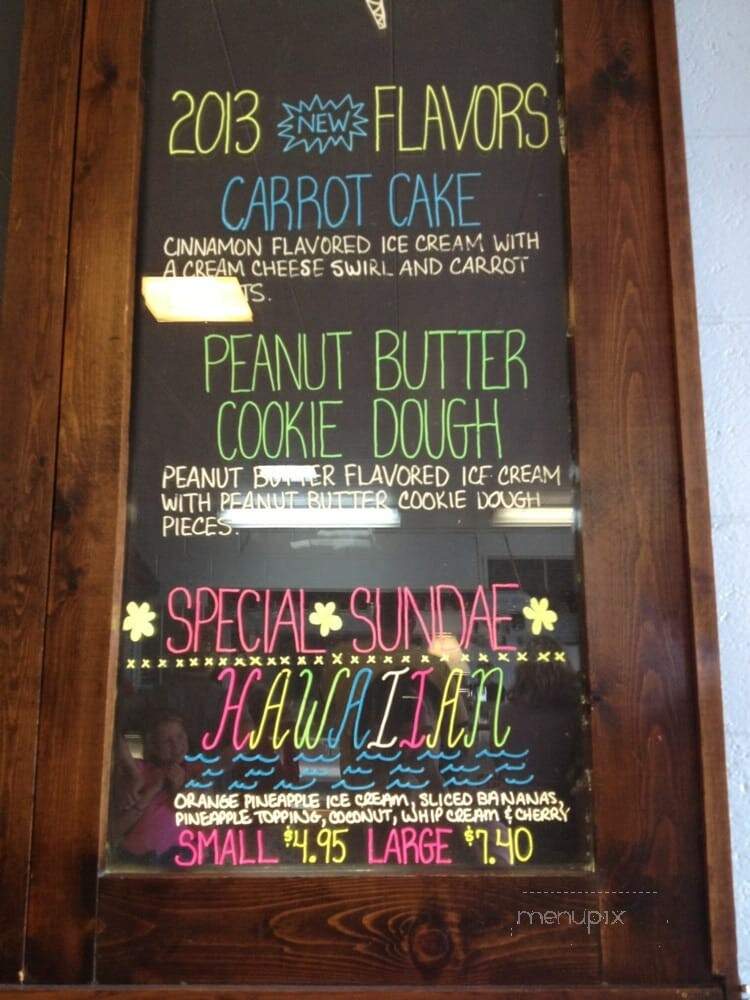 2013 NEW FLAVORS
CARROT CAKE
CINNAMON FLAVORED ICE CREAM WITH
A CREAM CHEESE SWIRL AND CARROT
PEANUT BUTTER
COOKIE DOUGH
PEANUT BUTTER FLAVORED ICE CREAM
WITH PEANUT BUTTER COOKIE DOUGH
PIECES.
SPECIAL SUNDAE
HAWAIIAN
ORANGE PINEAPPLE ICE CREAM, SLICED BANANAS,
PINEAPPLE TOPPING, COCONUT, WHIP CREAM & CHERRY
SMALL $4.95 LARGE $7.40
menupix